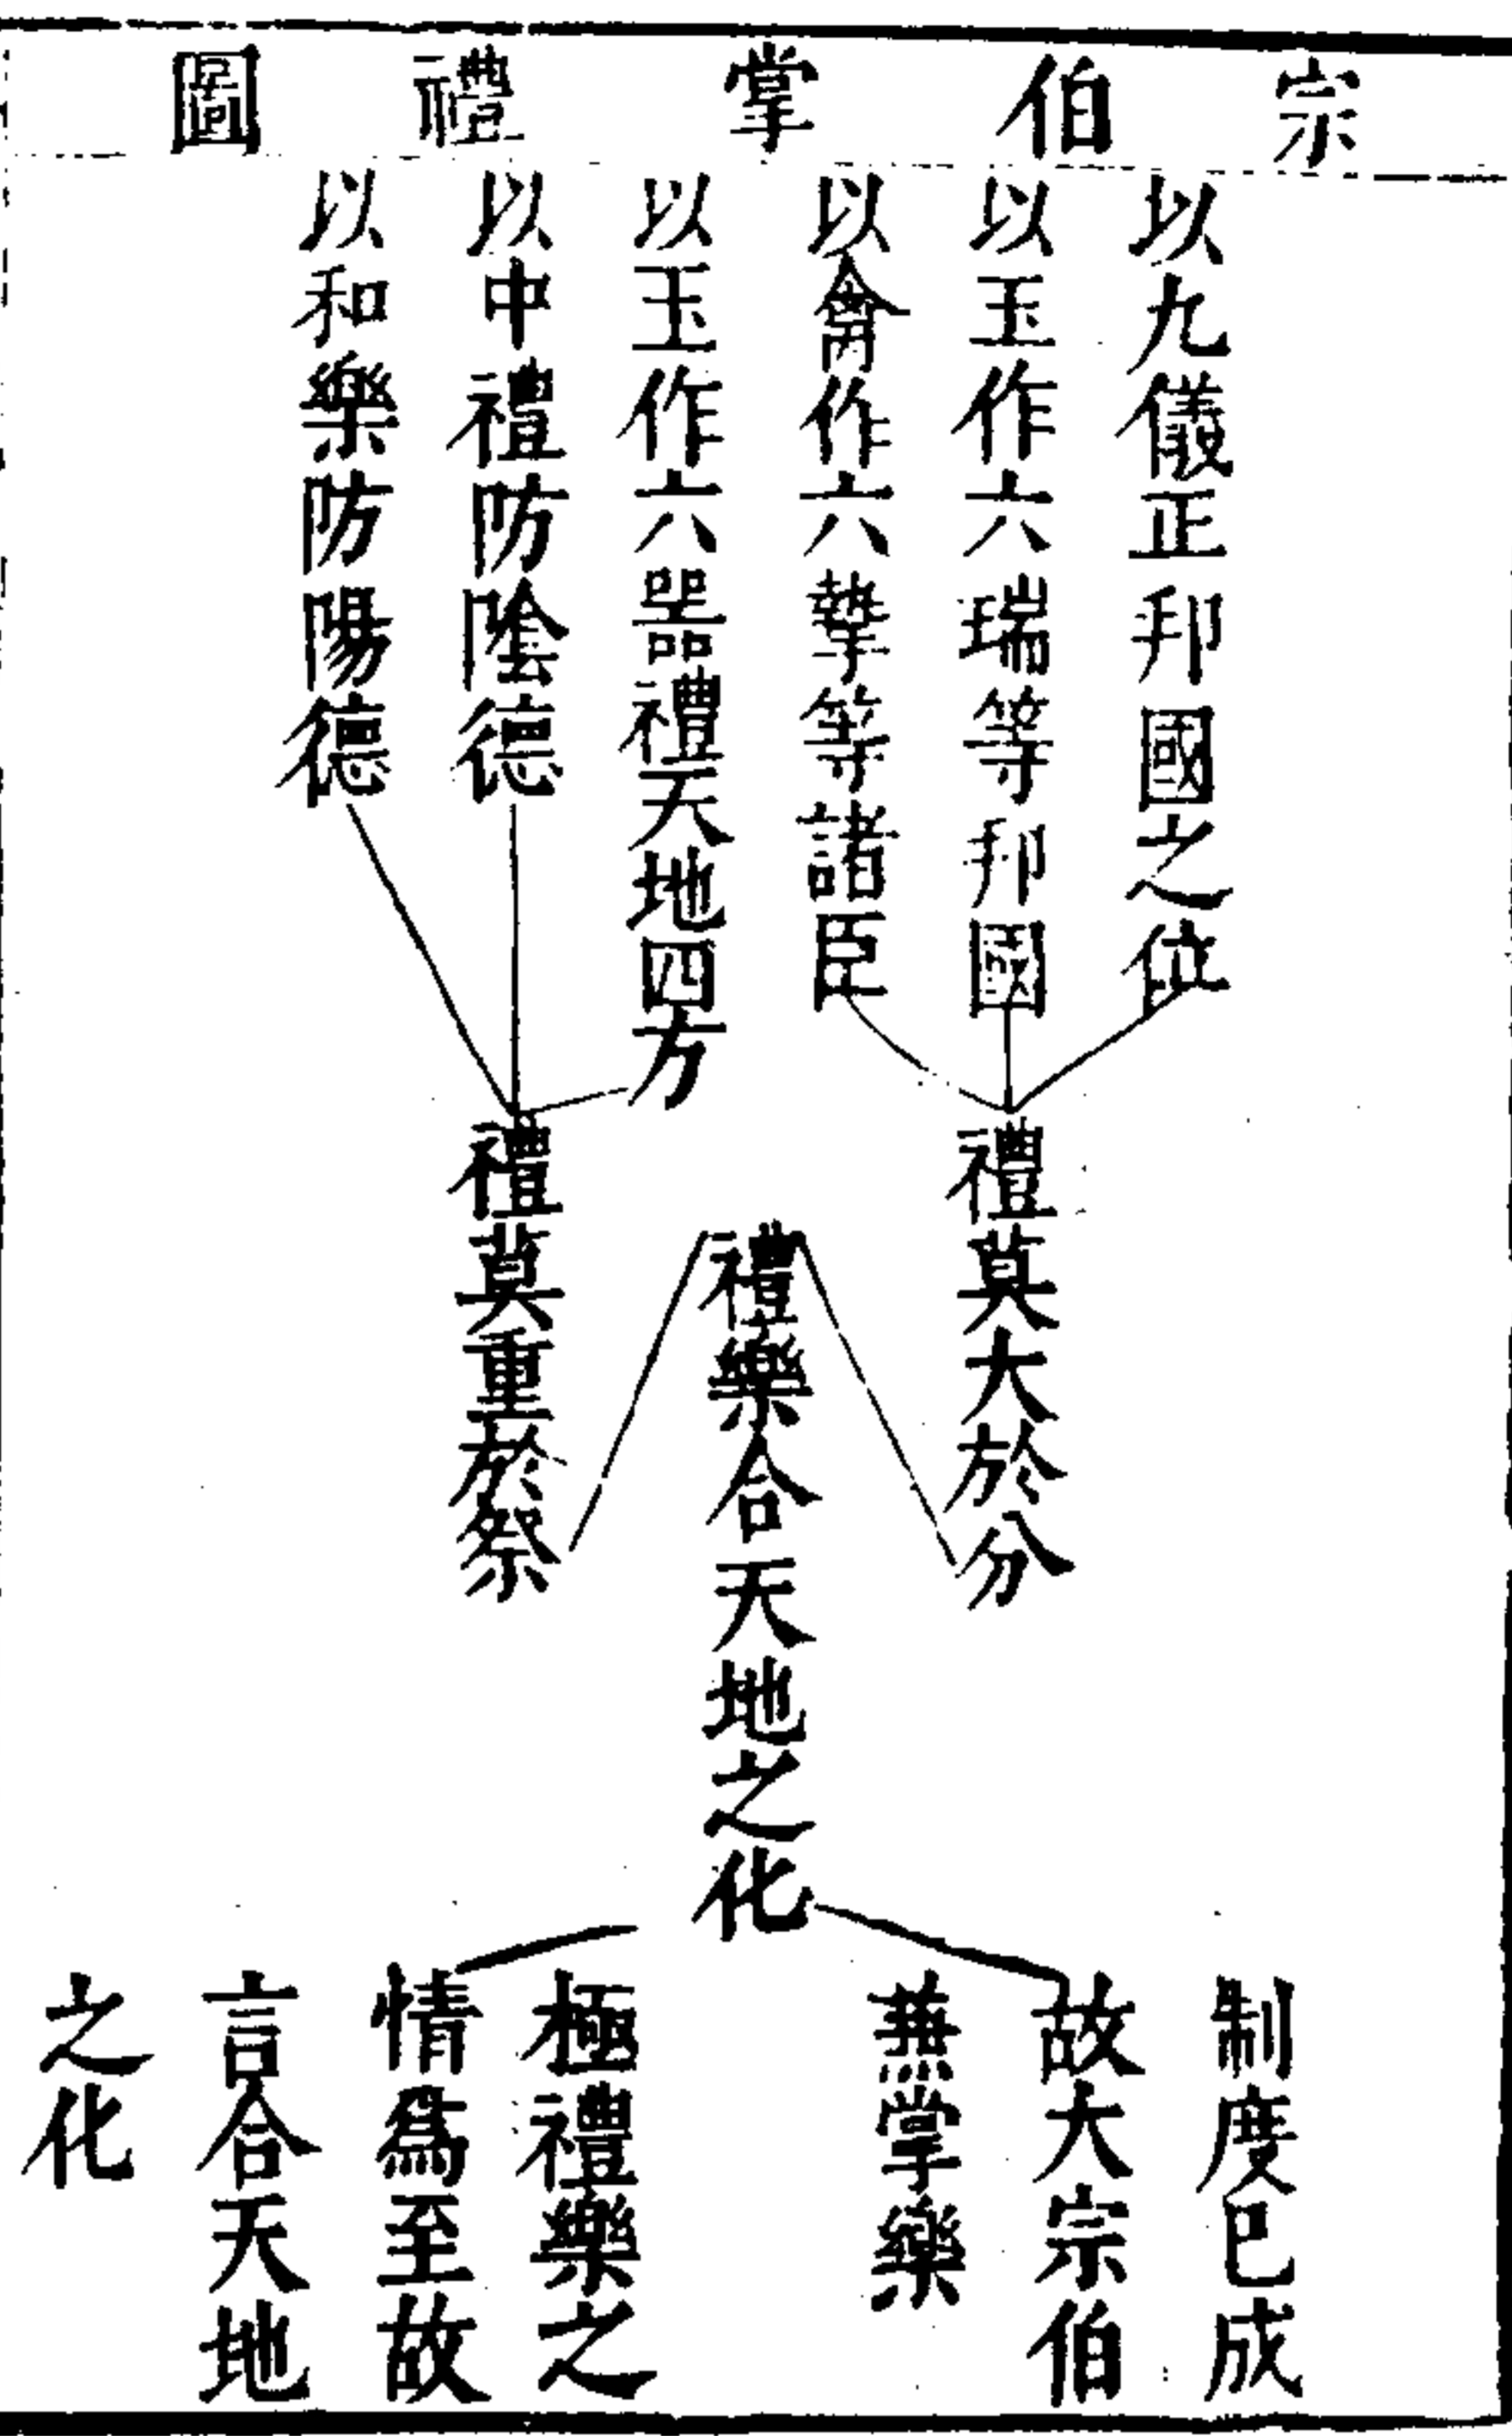 宗伯掌禮圖
以九儀正邦國之位
以玉作六瑞等邦國
以禽作六摯等諸臣
以玉作六器禮天地四方
以中禮防陰德
以和樂防陽德
禮莫大於分
禮樂合天地之化
禮莫重於祭
制度已成
故大宗伯
兼掌樂
極禮樂之
情爲至故
言合天地
之化